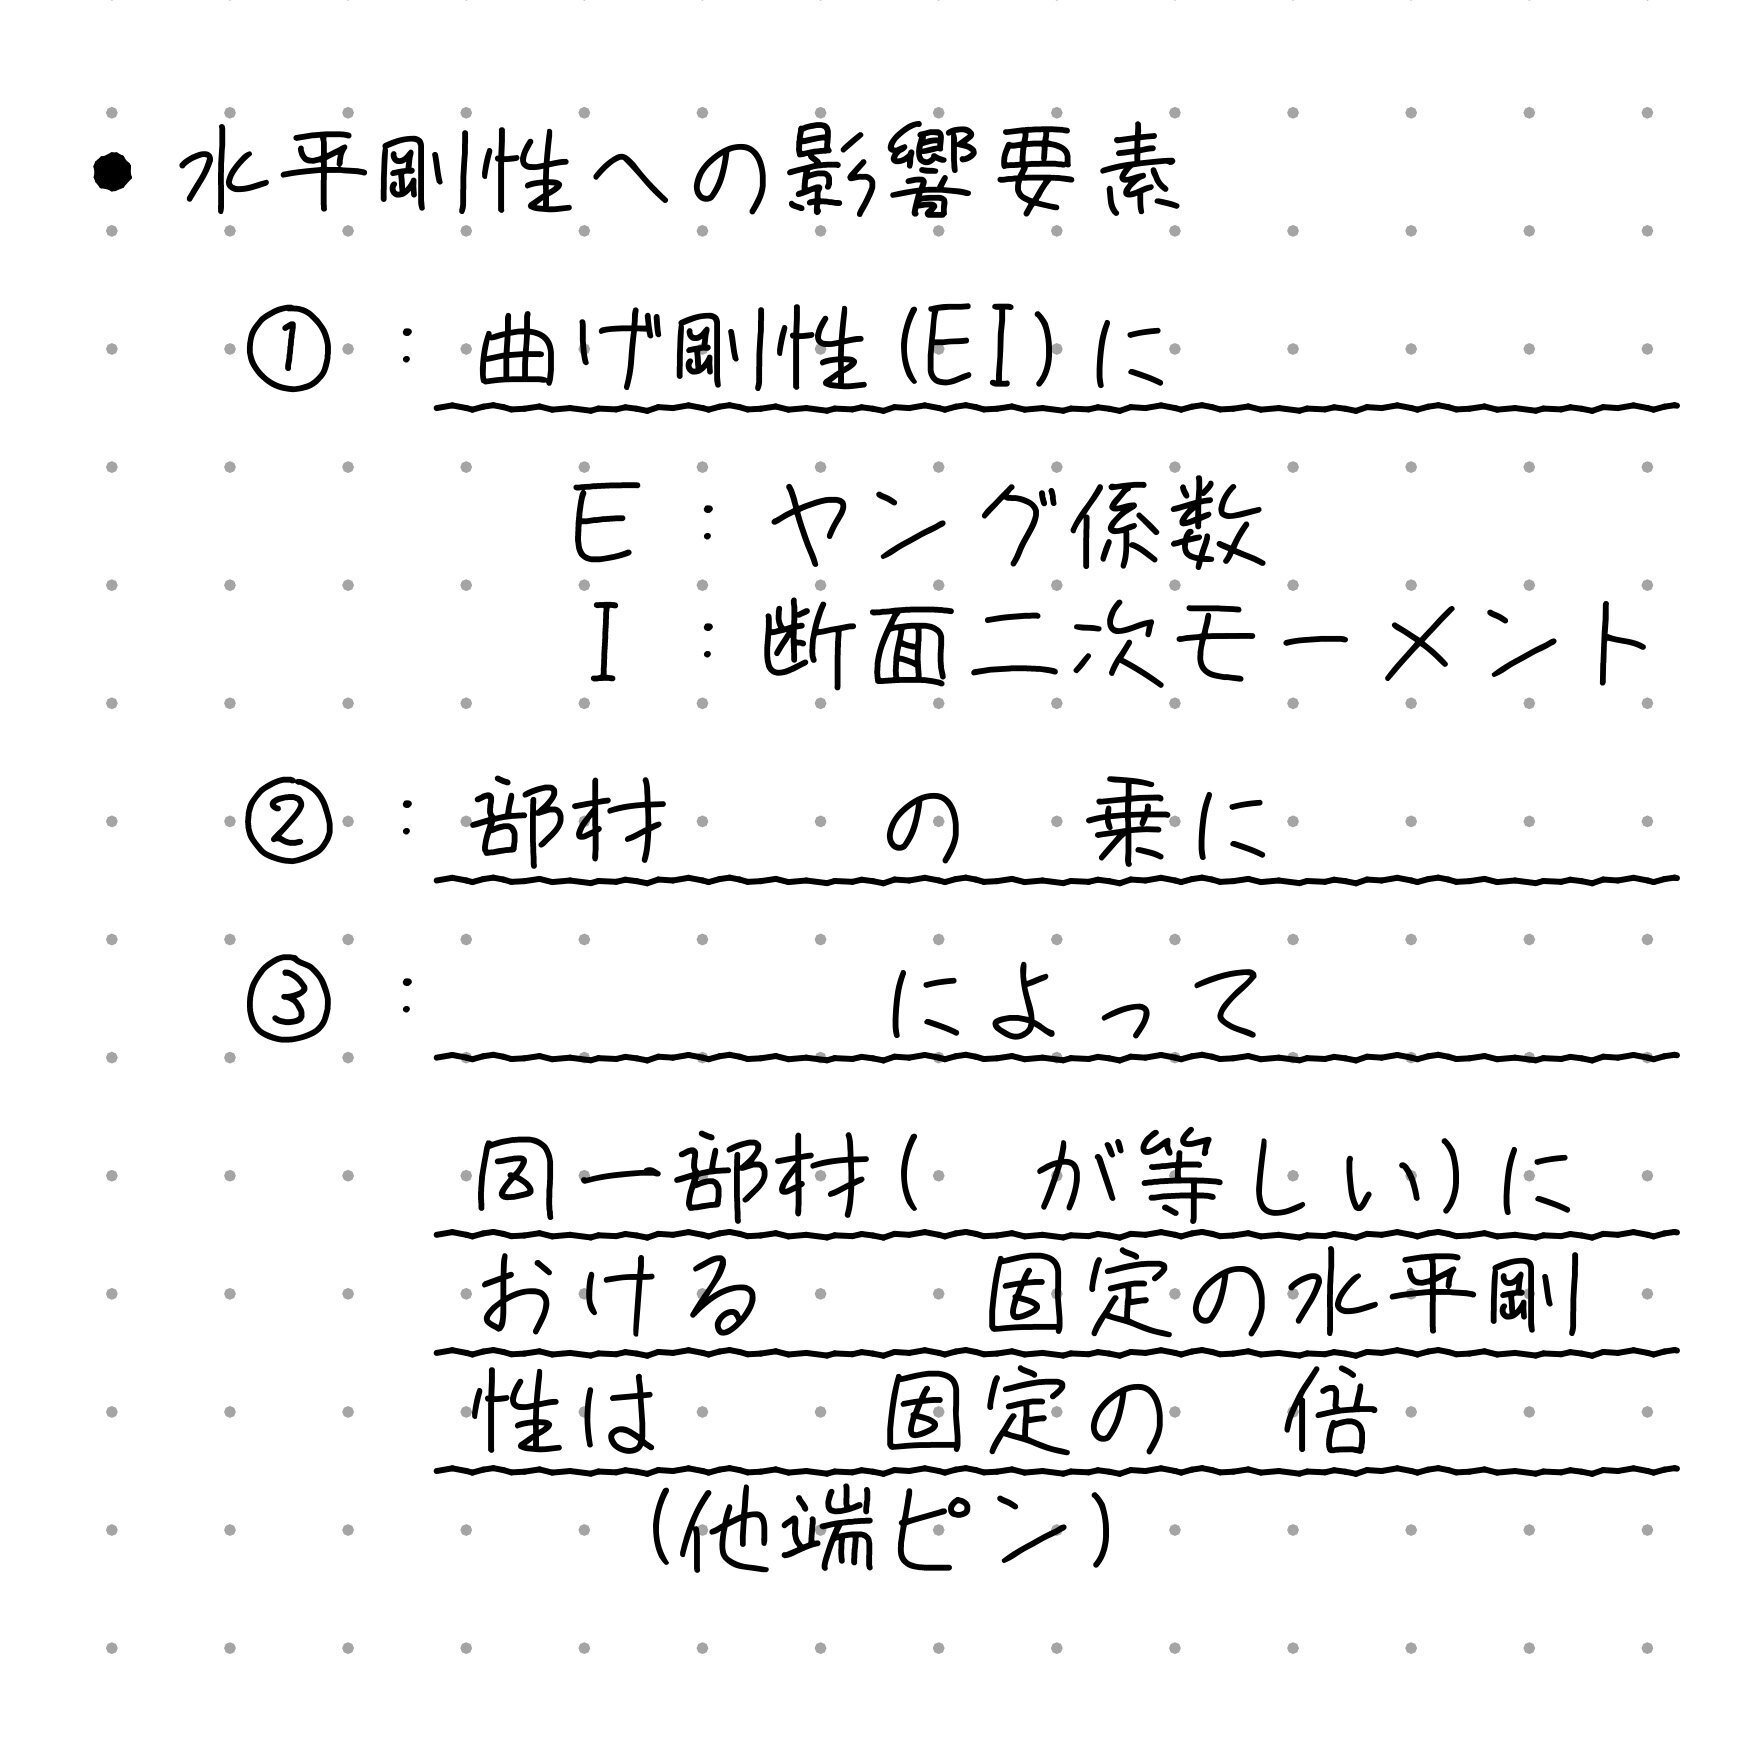 ● 水平剛性への影響要素
① : 曲げ剛性(EI)に
E : ヤング係数
I : 断面二次モーメント
② : 部材 の 乗に
③ : によって
同一部材( が等しい)に
おける 固定の水平剛
性は 固定の 倍
(他端ピン)